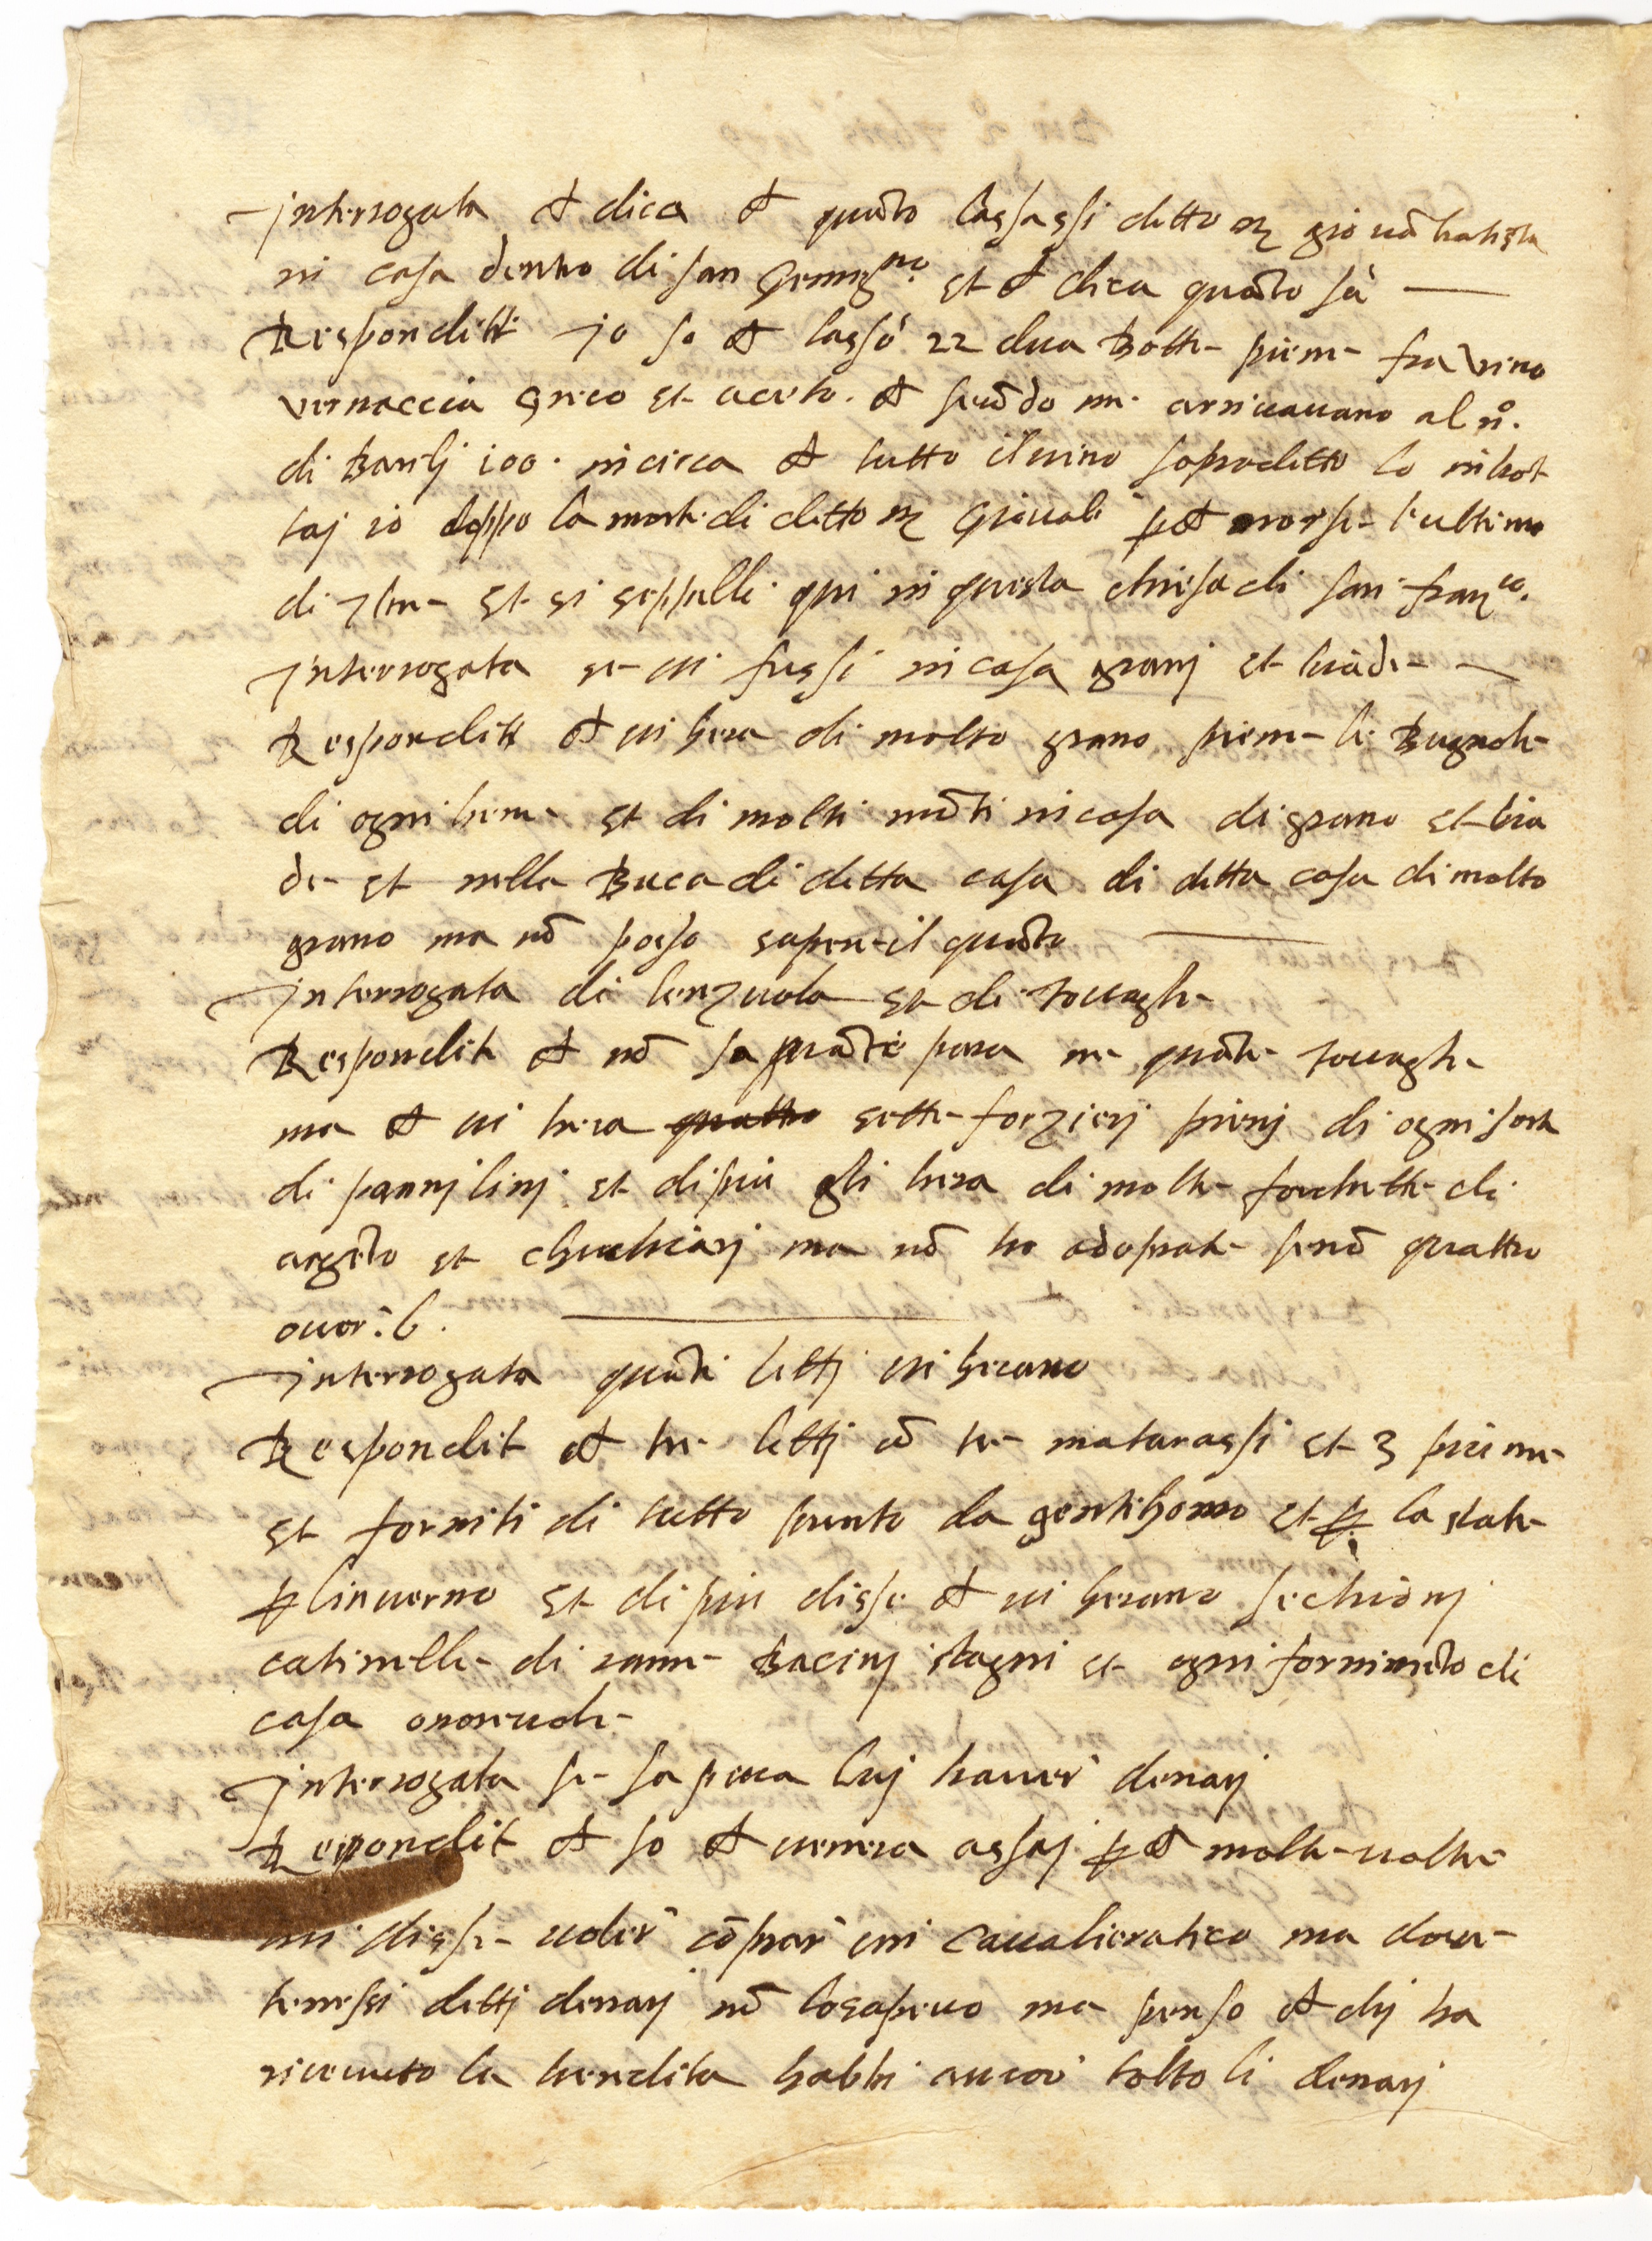 interrogata ch dica ch quāto lassassi detto m giovābatista
in casa dentro di san Gimigno. et ch dica quāto sà
Responditt io so ch lassò 22 dua Botte piene fra vino
vernaccia Greco et aceto. ch secōdo me arrivavano al n°.
di Barilj 100. incirca ch tutto il vino sopradetto lo inbot
taj io doppo la morte di detto m Giovab p ch morse l'ultimo
di 7bre et si seppellì qui in questa chiesa di san franco.
interrogata se vi fussi in casa granj et biade
Responditt ch vi hera di molto grano piene le Bugnole
di ogni bene et di molti mōti in casa di grano et bia
de et nella Buca di ditta casa di ditta casa di molto
grano ma nō posso sapere il quāto
interrogata di lenzuola et di tovaglie
Respondit ch nō sa quāte para ne quāte tovaglie
ma ch vi hera quattro sette forzierj pienj di ogni sorte
di pannj linj et di più gli hera di molte forchette di
argēto et chuchiarj ma nō ho adoprate senō quattro
over 6.
interrogata quāti lettj vi herano
Respondit ch tre lettj cō tre matarassi et 3 piume
et forniti di tutto punto da gentilhomo et p la state
p linverno et di più disse ch vi herano sechionj
catinelle di rame Bacinj stagni et ogni fornimēto di
casa onorevole
interrogata se sapeva luj haver denarj
Respondit ch so ch venera assaj p ch molte volte
mi disse voler cōprar un cavalieratico ma dove
tenessi dettj denarj nō lo sapevo ma penso ch chj ha
ricevuto la heredita habbi ancor tolto li denarj